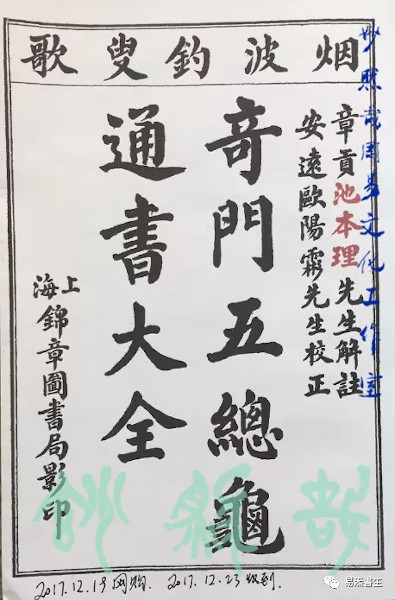 烟波釣叟歌
章貢池本理先生解註
安遠歐陽霖先生校正
奇門五總龜
通書大全
上海錦章圖書局影印
妙照哉周易文化工作室
2017.12.19网购. 2017.12.23收到.
易丞書生